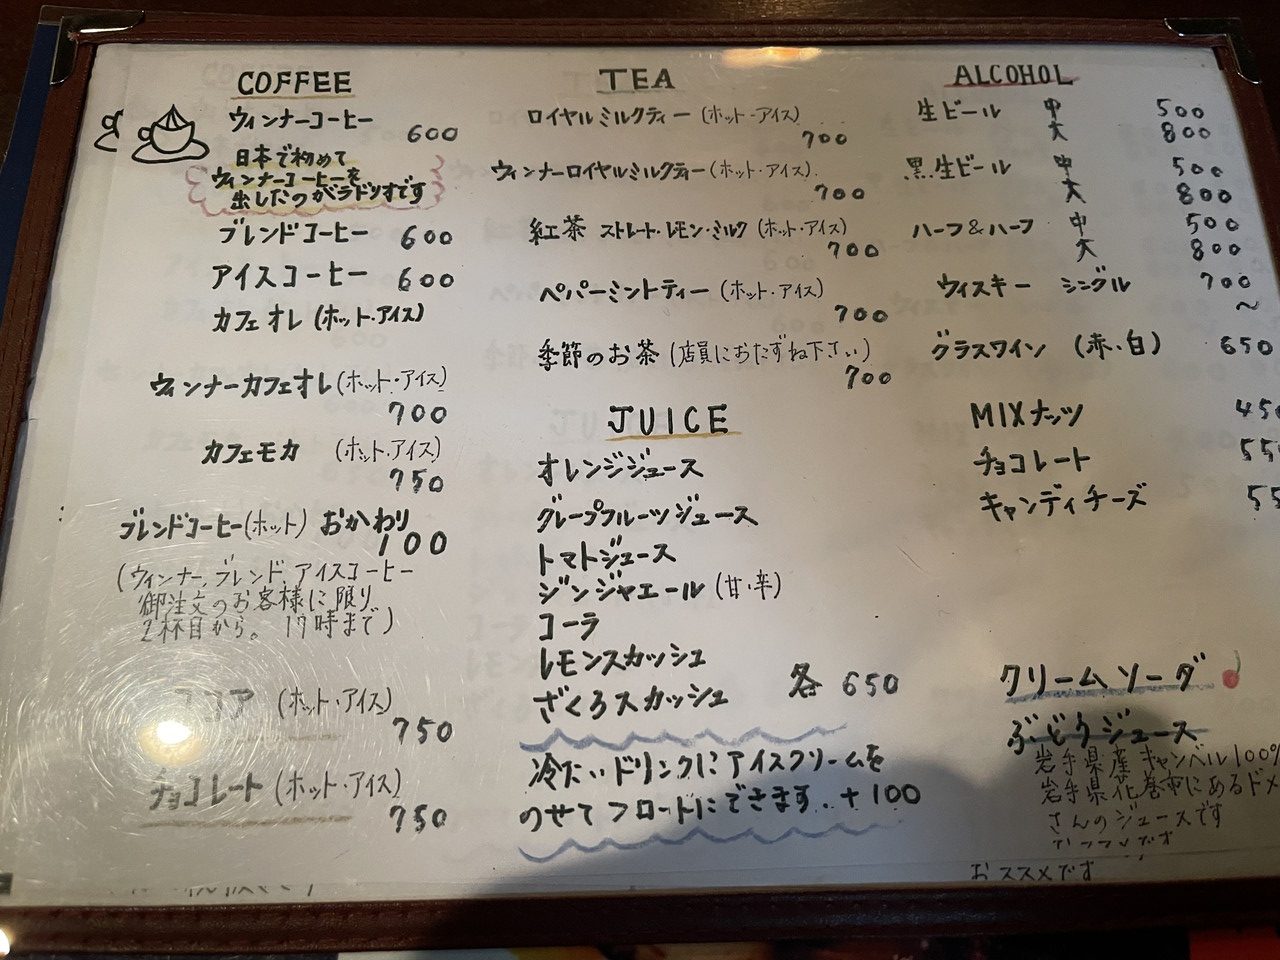 COFFEE
ウィンナーコーヒー 600
日本で初めて
ウィンナーコーヒーを
出したのがラドリオです
ブレンドコーヒー 600
アイスコーヒー 600
カフェオレ (ホット・アイス)
ウィンナーカフェオレ(ホット・アイス)
700
カフェモカ (ホット・アイス)
750
ブレンドコーヒー(ホット) おかわり
100
(ウィンナー、ブレンド、アイスコーヒー
御注文のお客様に限り
2杯目から。 17時まで)
ココア (ホット・アイス)
750
チョコレート (ホット・アイス)
750
TEA
ロイヤルミルクティー (ホット・アイス)
700
ウィンナーロイヤルミルクティー(ホット・アイス)
700
紅茶 ストレート・レモン・ミルク (ホット・アイス)
700
ペパーミントティー (ホット・アイス)
700
季節のお茶 (店員におたずね下さい)
700
JUICE
オレンジジュース
グレープフルーツジュース
トマトジュース
ジンジャエール (甘・辛)
コーラ
レモンスカッシュ
ざくろスカッシュ 各 650
冷たいドリンクにアイスクリームを
のせてフロートにできます..+100
ALCOHOL
生ビール 中 500
大 800
黒生ビール 中 500
大 800
ハーフ&ハーフ 中 500
大 800
ウィスキー シングル 700
~
グラスワイン (赤・白) 650
MIXナッツ 450
チョコレート 55
キャンディチーズ 55
クリームソーダ
ぶどうジュース
岩手県産キャンベル100%
岩手県花巻市にあるドメ
さんのジュースです
おススメです